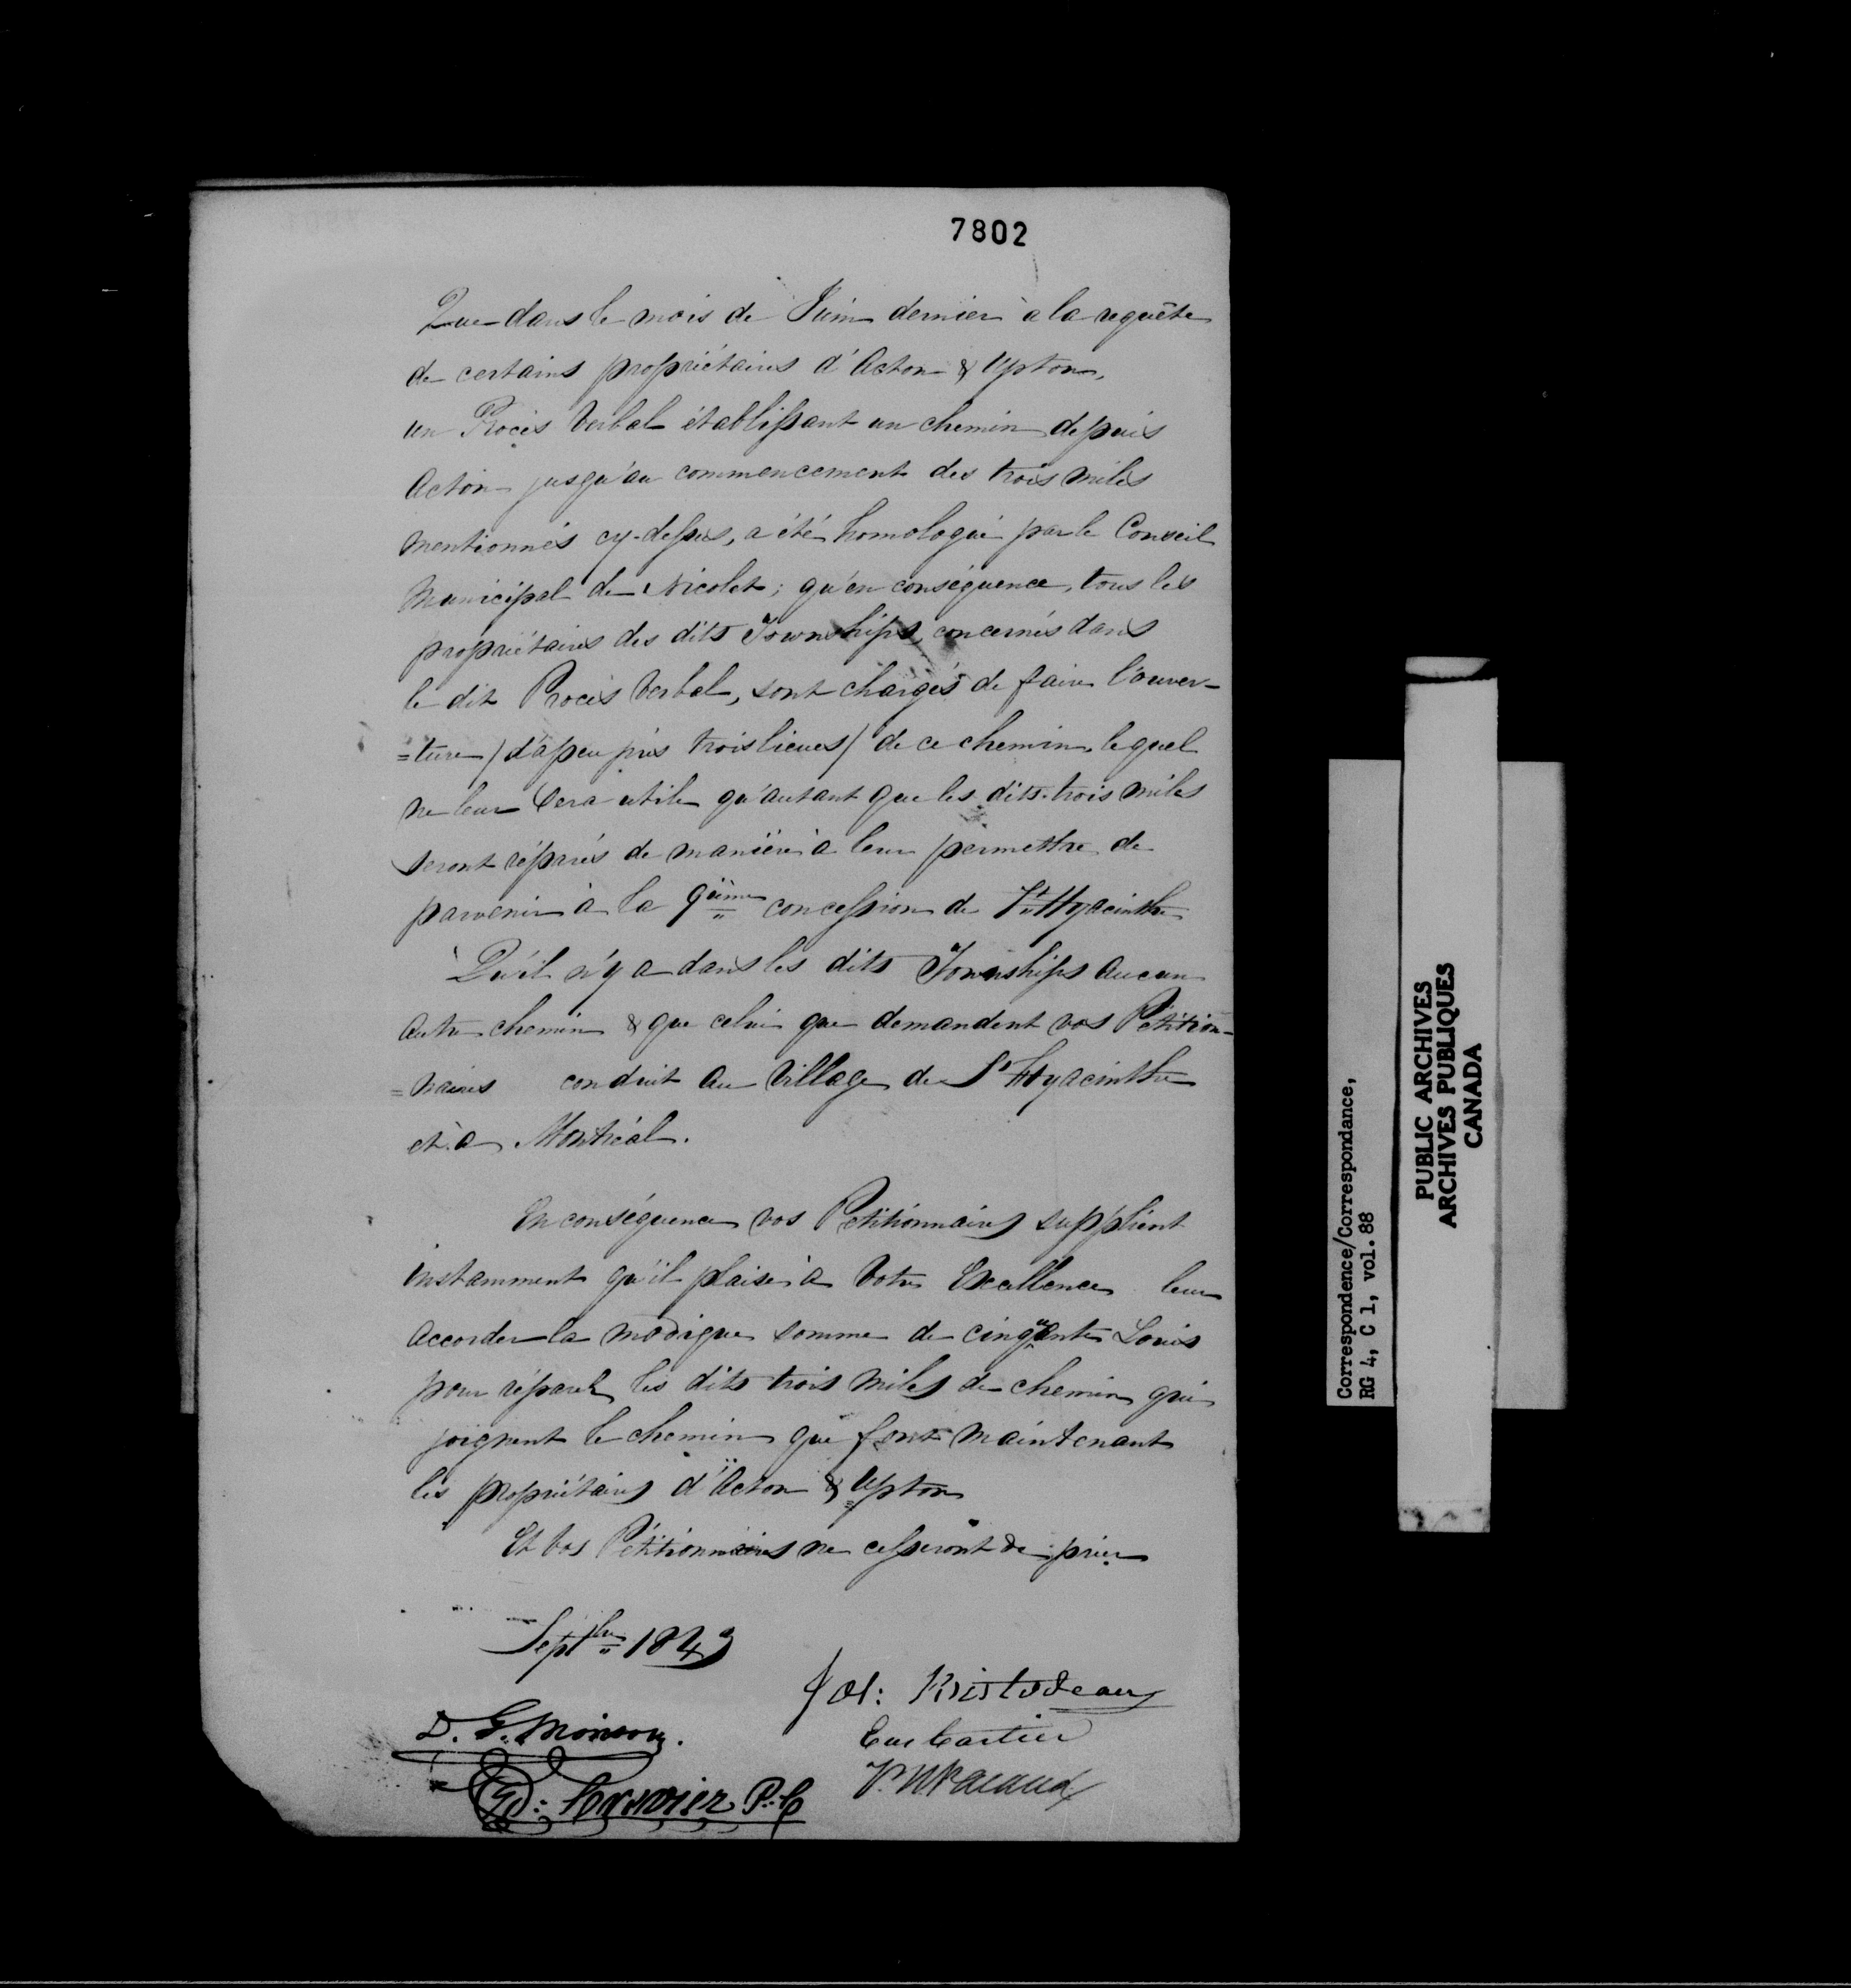 7802
Que dans le mois de Juin dernier à la requête
de certains propriétaires d'Acton & Upton,
un Procès Verbal établissant un chemin depuis
Acton jusqu'au commencement des trois miles
mentionnés cy-dessus, a été homologué par le Conseil
Municipal de Nicolet; qu'en conséquence, tous les
propriétaires des dits Townships, concernés dans
le dit Procès Verbal, sont chargés de faire l'ouver-
=ture / d'apeu près trois lieues / de ce chemin, lequel
ne leur sera utile qu'autant que les dits trois miles
seront réparés de manière à leur permettre de
parvenir à la 9ième concession de St Hyacinthe
Qu'il n'y a dans les dits Townships aucun
autre chemin & que celui que demandent vos Pétition-
=naires conduit au Village de St Hyacinthe
et à Montréal.
En conséquence vos Petitionnaires supplient
instamment qu'il plaise à Votre Excellence leur
accorder la modique somme de cinquante Louis
pour réparer les dits trois miles de chemin qui
joignent le chemin que font maintenant
les propriétaires d'Acton & Upton
Et vos Pétitionnaires ne cesseront de prier
Septbre 1843
Jos: Bistodeau
D. G. Morison.
Eus Cartier
Ed: Crevier P.
Correspondence/Correspondance,
RG 4, C 1, vol. 88
PUBLIC ARCHIVES
ARCHIVES PUBLIQUES
CANADA